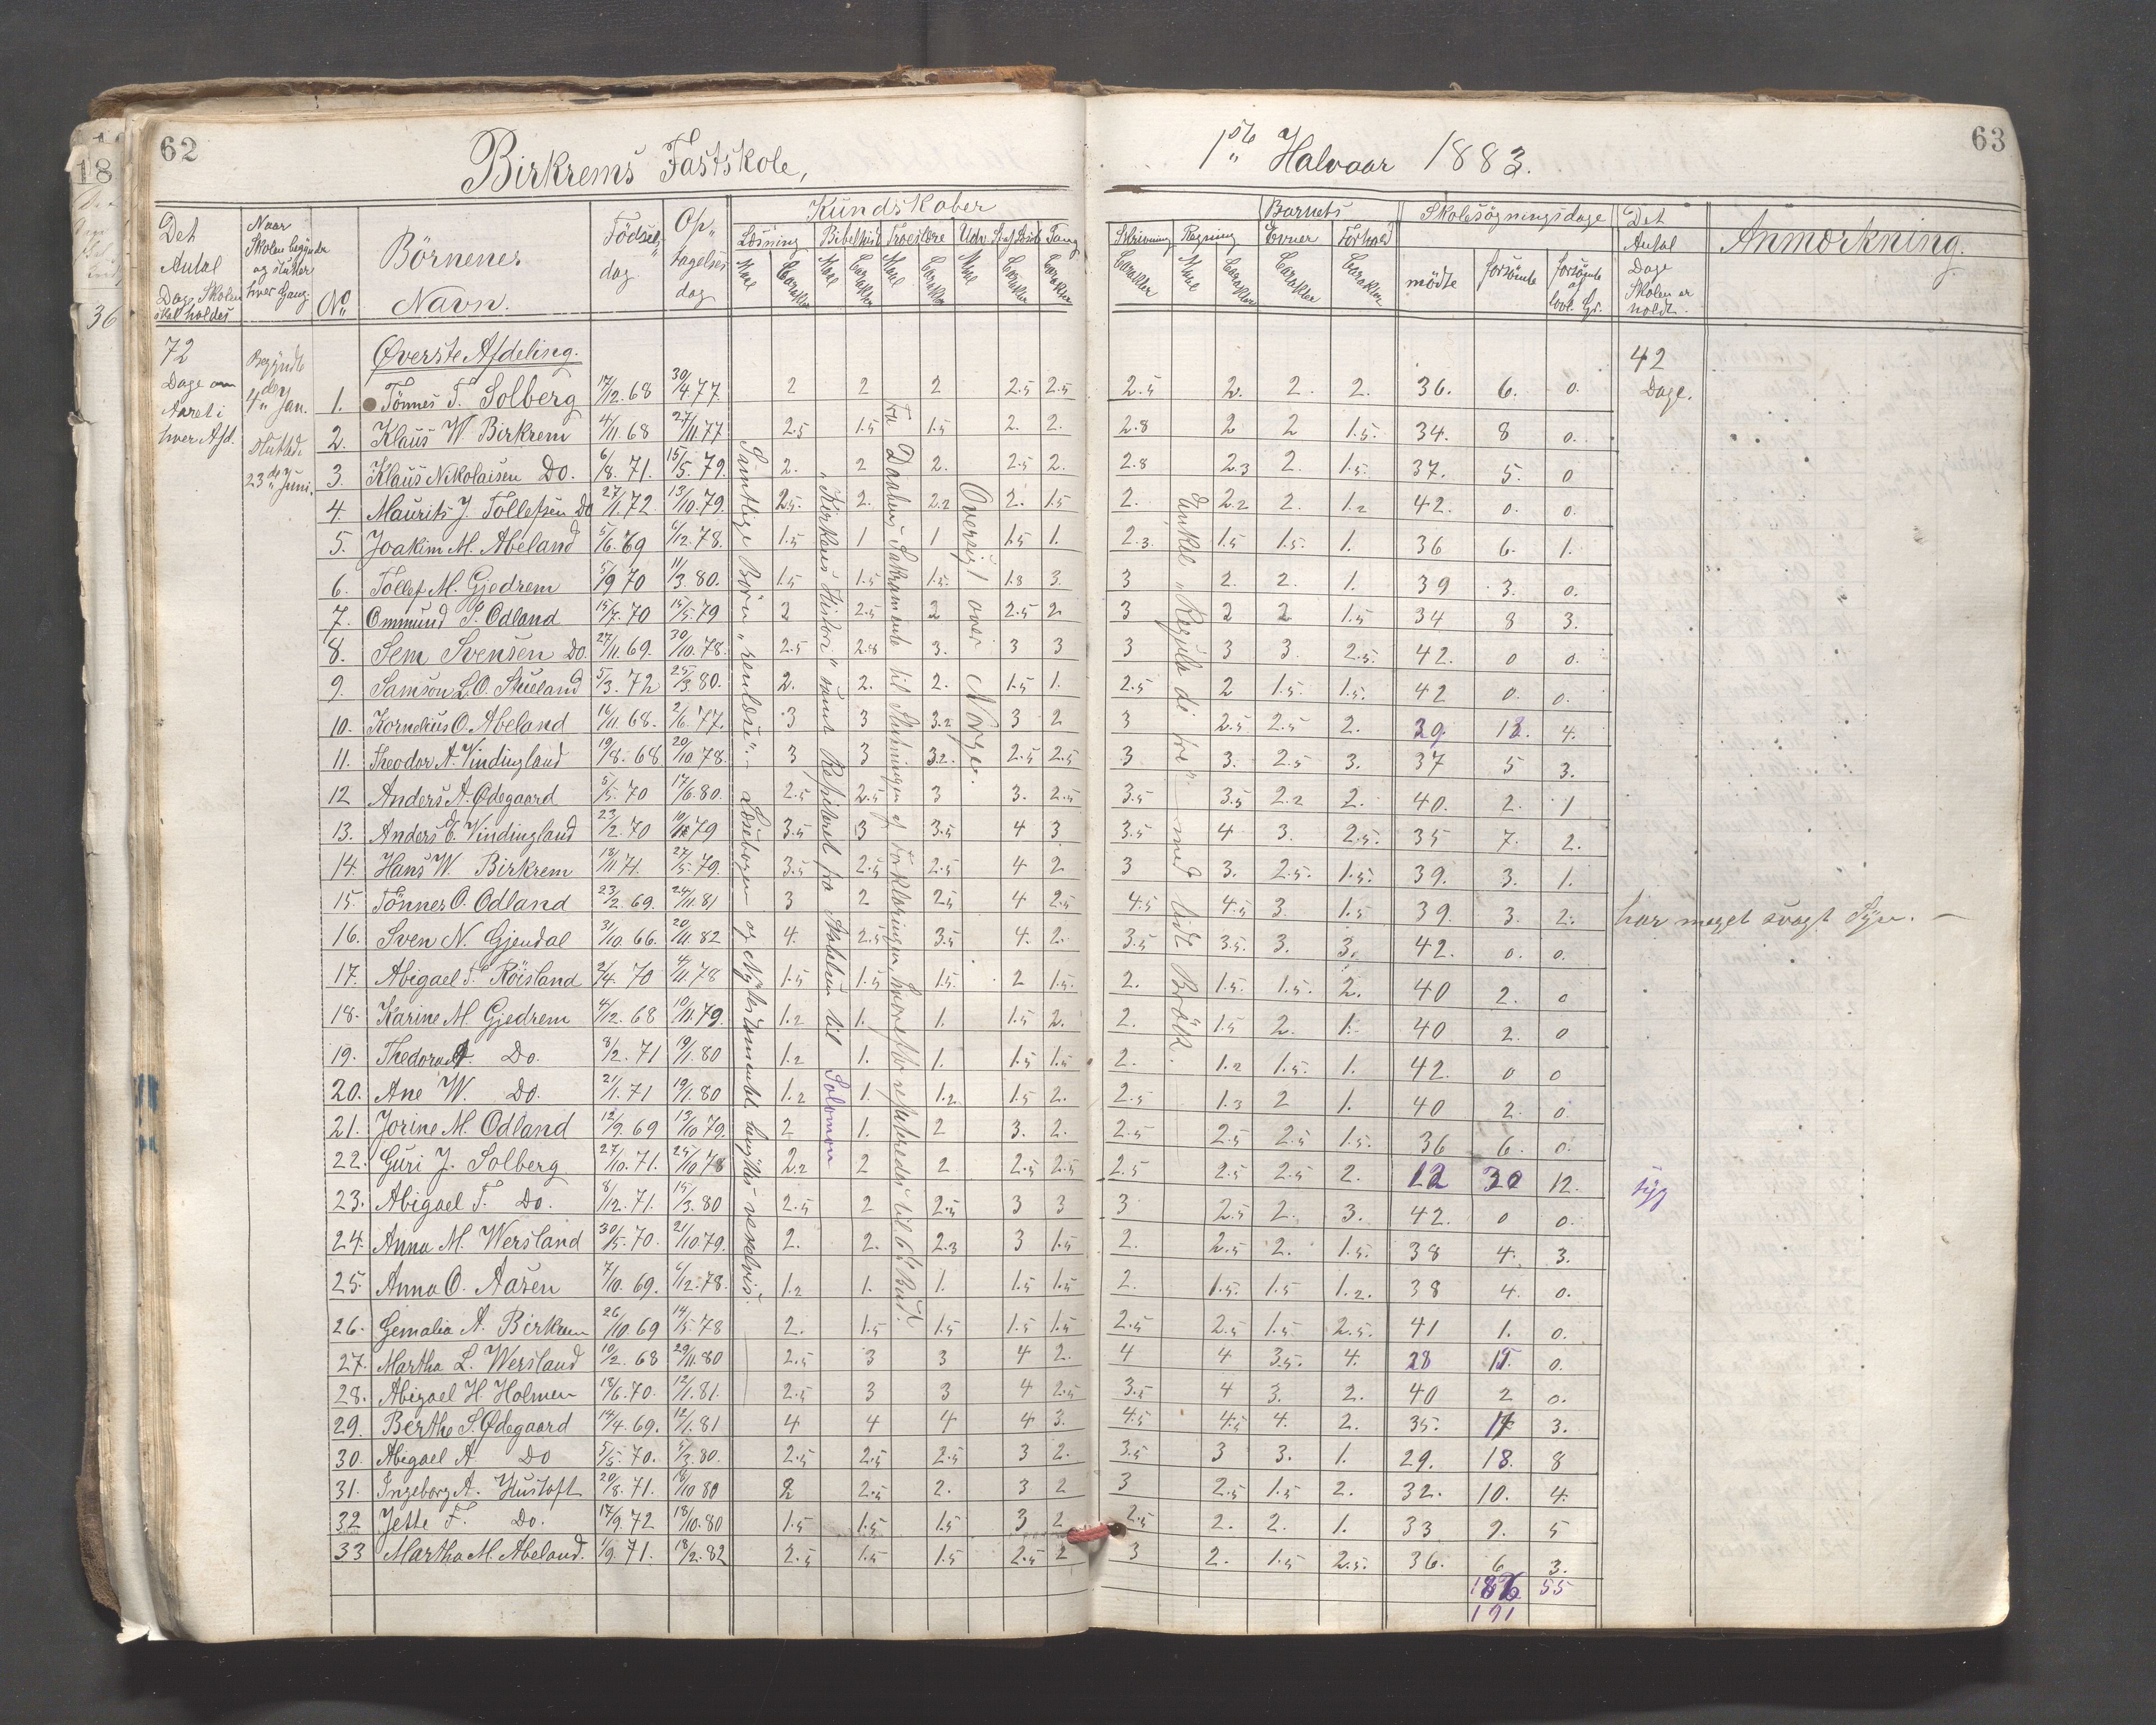 62
Birkrems Fastskole,
1ste Halvaar 1883.
63
Det Antal Dage Skolen skal holdes
Naar Skolen begynder og slutter hver Gang.
No
Börnenes Navn.
Födsels dag
Optagelses dag
Kundskaber
Læsning Maal Carakter
Bibelhist Maal Carakter
Troeslære Maal Carakter
Udv. Maal
Carakter
Sang Carakter
Skrivning Carakter
Regning Maal Carakter
Barnets
Evner Carakter
Forhold Carakter
Skolesögningsdage
mödte
forsömte
forsömte af lovl. Gr.
Det Antal Dage Skolen er holdt.
Anmærkning.
72 Dage om Aaret i hver Afd.
Begyndte 4de Jan. Sluttede 23de Juni.
Øverste Afdeling.
42 Dage.
1. Tönnes T. Solberg 17/12.68 30/4.77. 2 2 2 2.5 2.5 2.5 2. 2. 2. 36. 6. 0.
2. Klaus W. Birkrem 4/11.68 27/11.77 2.5 1.5 1.5 2. 2. 2.8 2 2 1.5. 34. 8 0.
3. Klaus Nikolaisen Do. 6/8.71. 15/5.79. 2. 2 2. 2.5 2. 2.8 2.3 2. 1.5. 37. 5. 0
4. Maurits J. Tollefsen Do 27/1.72. 13/10.79. 2.5. 2. 2.2 2. 1.5 2. 2.2 2. 1.2 42. 0. 0.
5. Joakim M. Abeland 5/6.69 6/12.78. 1.5 1 1 1.5 1. 2.3. 1.5 1.5. 1. 36 6. 1.
6. Tollef M. Gjedrem 5/9 70 11/3.80. 1.5 1.5 1.5. 1.8 3. 3 2. 2. 1. 39 3. 0.
7. Ommund S. Odland 15/7.70 15/5.79 2 2.5 2 2.5 2 3 2 2 1.5 34 8 3.
8. Sem Svensen Do. 27/11.69. 30/10.78. 2.5 2.8 3. 3 3 3 3 3. 2.5. 42. 0 0.
9. Samson L.O. Skieland 5/3.72 25/3.80. 2. 2. 2. 1.5 1. 2.5 2 1.5. 1.5. 42 0. 0.
10. Kornelius O. Abeland 16/11.68. 2/6.77. 3 3 3.2 3 2 3 2.5 2.5 2. 29. 12. 4.
11. Theodor A. Vindingland 19/8.68 20/10 78. 3 3 3.2. 2.5 2.5 3 3. 2.5 3. 37 5 3.
12 Anders A. Ødegaard 5/5.70 17/6.80. 2.5 2.5 3 3. 2.5 3.5 3.5 2.2 2. 40. 2. 1
13. Anders E. Vindingland 23/2.70 79 3.5 3 3.5 4 3 3.5 4 3. 2.5. 35 7. 2.
14. Hans W. Birkrem 18/11 71. 27/5.79. 3.5 2.5 2.5 4 2 3 3. 2.5. 1.5. 39. 3. 1.
15. Tönnes O. Odland 23/2.69. 24/11.81 3 2 2.5 4 2.5 4.5 4.5 3. 1.5 39. 3. 2. har meget svagt Syn. –
16. Sven N. Gjendal 31/10.66. 20/11.82 4. 2.5 3.5 4. 2. 3.5 3.5. 3. 3. 42. 0. 0.
17. Abigael T. Röisland 2/4.70 4/11.78 1.5 1.5 1.5. 2 1.5. 2. 1.5. 1.5. 2. 40 2. 0
18. Karine M. Gjedrem 4/12.68 10/11.79. 1.2 1. 1. 1.5 2. 2. 1.5 2. 1. 40 2. 0
19. Thedora A. Do. 8/2.71 19/1.80 1.2 1. 1. 1.5 1.5 2. 1.2 1.5. 1. 42. 0 0
20. Ane W. Do. 21/1.71 19/1.80 1.2 1. 1.2 1.5 2. 2.5 1.3 2 1. 40 2. 0.
21. Jorine M. Odland 12/9.69 13/10 79. 2 1. 2 3. 2. 2.5 2.5 2.5 1.5. 36 6. 0.
22. Guri J. Solberg 27/10.71. 25/10 78 2.2 2 2 2.5 2.5 2.5 2.5 2.5 2. 12 30 12. syg
23. Abigael T. Do. 8/12.71. 15/3.80 2.5 2 2.5 3 3 3 2.5 2. 3. 42. 0 0.
24. Anna M. Wersland 30/5.70. 21/10 79. 2. 2. 2.3 3 1.5 2. 2.5 2. 1.5. 38 4. 3.
25. Anna O. Aasen 7/10.69. 6/12.78. 1.2 1. 1. 1.5 1.5 2. 1.5. 1.5 1.2. 38 4. 0.
26. Gemalia A. Birkrem 26/10 69 14/5.78 2. 1.5 1.5 1.5 1.5 2.5 2.5 1.5 2.5. 41 1. 0.
27. Martha L. Wersland 10/2.68 29/11.80 2.5 3 3 4 2. 4 4 3.5. 4. 28 15. 0.
28. Abigael H. Holmen 18/6.70. 12/1.81. 2.5 3 3 4 2.5 3.5 4 3. 2. 40 2 0.
29. Berthe S. Ødegaard 14/4.69. 12/1.81 4 4 4 4 3. 4.5 4.5 4. 2. 35. 17 3.
30. Abigael A. Do 5/5.70. 5/3.80. 2.5 2.5 2.5 3 2. 3.5 3 3. 1. 29. 18. 8
31. Ingeborg A. Hustoft 20/8.71. 19/10 80 2 2.5 2. 3 2 3 2.5 1.5 2. 32. 10. 4.
32 Jette T. Do. 17/9.72 18/10.80 1.5 1.5 1.5 3 2 2.5 2. 2. 1. 33 9. 5
33 Martha M. Abeland. 1/9.71. 18/2.82 2.5 1.5 1.5 2.5 2 3 2. 1.5 2.5. 36. 6 3.
55
191
Samtlige Börn "renlæse". – Læsebogen og Nytestamentet benyttes vexelvis.
"Kirkens Histori" samt Repeteret fra Skabelsen til Solomon
Fra Daabens Sakramente til Slutningen af Forklaringen, hvorefter repeteredes til 6te Bud.
Oversigt over Norge.
Enkel "Regula de tri" – med lidt Brök.
36
18